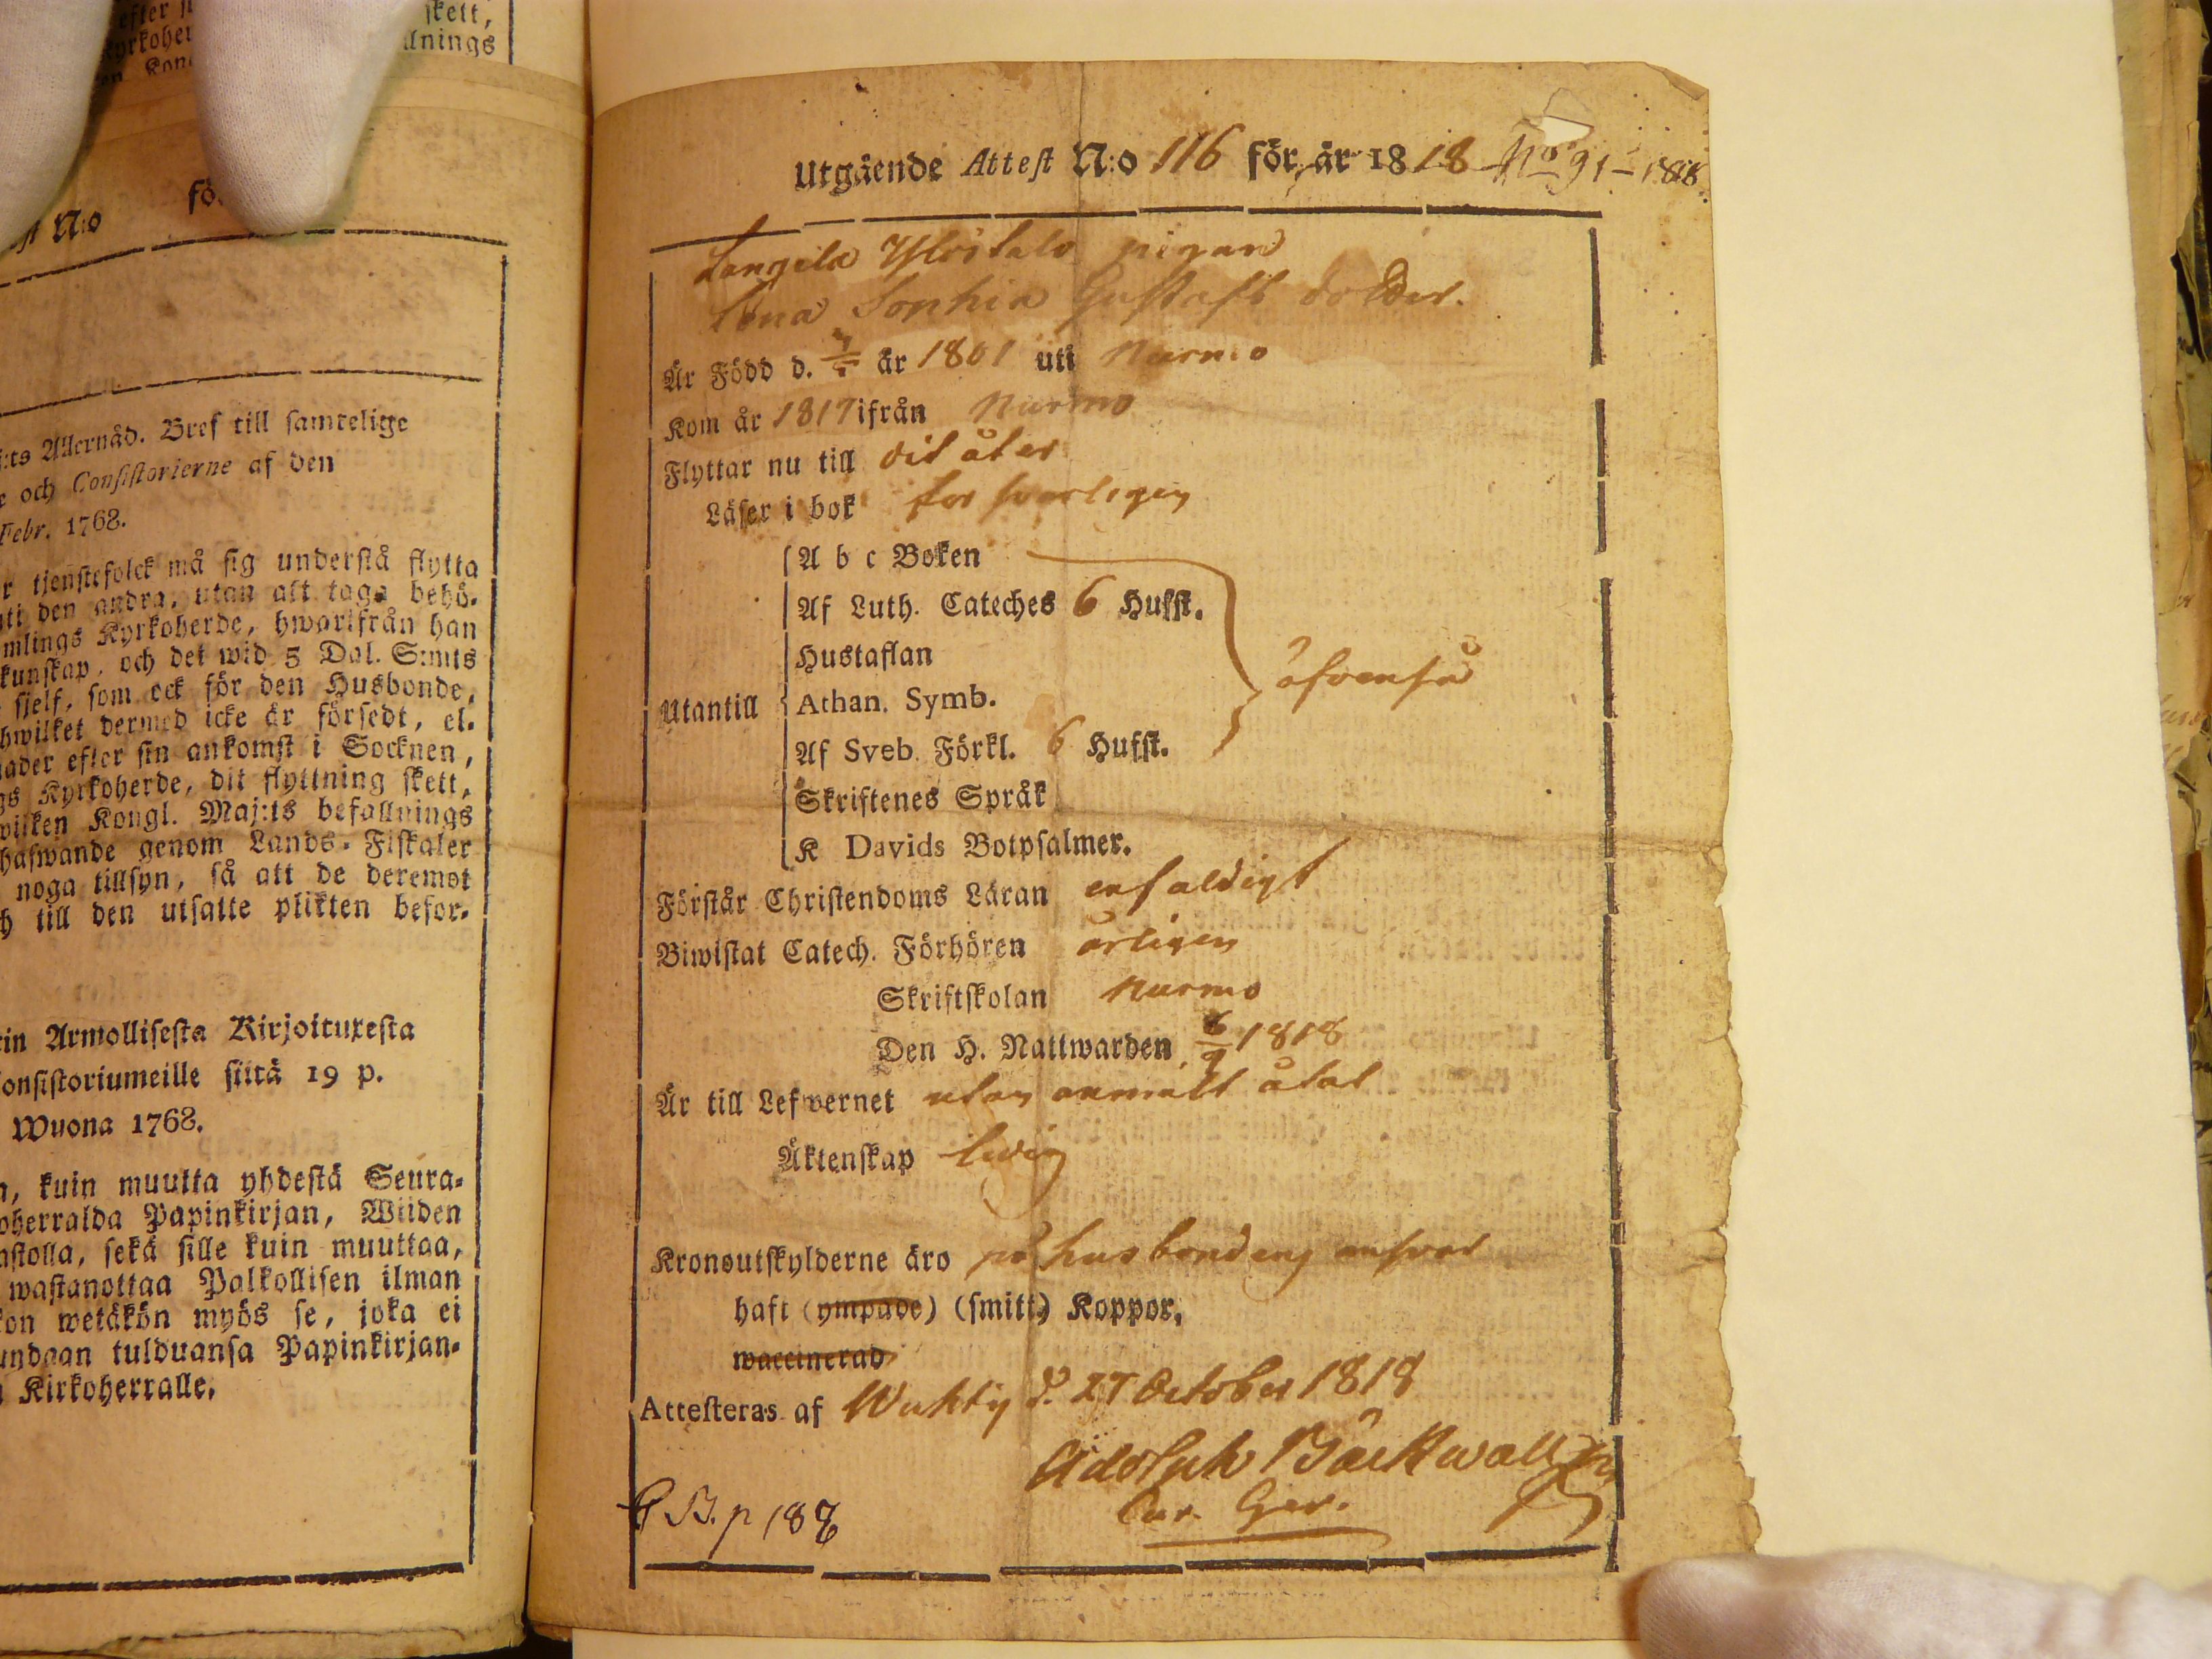 efter
skett,
Kyrkoher
llnings
N:o fö
:ts Allernåd. Bref till samtelige
och Consistorierne af den
Febr. 1768.
r tjenstefolck må sig understå flytta
uti den andra, utan att taga behö-
mlings Kyrkoherde, hwarifrån han
kunskap, och det wid 5 Dal. S:mts
sjelf, som ock för den Husbonde,
hwilket dermed icke är försedt, el-
nader efter sin ankomst i Socknen,
gs Kyrkoherde, dit flyttning skett,
wilken Kongl. Maj:ts befallnings
hafwande genom Lands-Fiskaler
noga tillsyn, så att de deremot
h till den utsatte plikten befor-
in Armollisesta Kirjoituxesta
onsistoriumeille siitä 19 p.
Wuona 1768.
n, kuin muutta yhdestä Seura-
oherralda Papinkirjan, Wiiden
astolla, sekä sille kuin muuttaa,
wastanottaa Palkollisen ilman
kon wetäkön myös se, joka ei
undaan tulduansa Papinkirjan-
Kirkoherralle.
Utgående Attest N:o 116 för år 1818 No 91 – 1818
Längilä Ylöstalo pigan
Lena Sophia Gustafs dotter.
Är Född d. år 1801 uti Nurmo
Kom år 1817 ifrån Nurmo
Flyttar nu till dit åter
Läser i bok försvarligen
A b c Boken
Af Luth. Cateches 6 Hufst.
Hustaflan
Utantill Athan. Symb. äfvenså
Af Sveb. Förkl. 6 Hufst.
Skriftenes Språk
K Davids Botpsalmer.
Förstår Christendoms Läran enfaldigt
Biwistat Catech. Förhören årligen
Skriftskolan Nurmo
Den H. Nattwarden 6/9 1818
Är till Lefwernet utan anmält åtal
Äktenskap ledig
Kronoutskylderne äro på husbondens answar
haft (ympade) (smitt) Koppor,
waccinerad
Attesteras af Wuktis d. 27 October 1818
Adolph Bäckwall
Cur. Ger.
C B. p 188